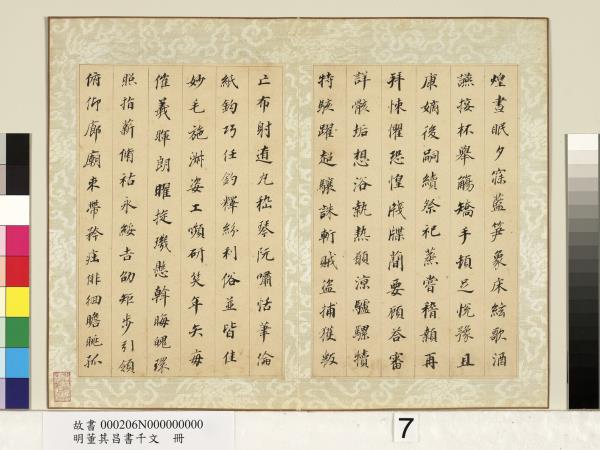 煌晝眠夕寐藍笋象床絃歌酒
讌接杯舉觴矯手頓足悅豫且
康嫡後嗣續祭祀蒸嘗稽顙再
拜悚懼恐惶牋牒簡要顧答審
詳骸垢想浴執熱願涼驢騾犢
特駭躍超驤誅斬賊盜捕獲叛
亡布射遼丸嵇琴阮嘯恬筆倫
紙鈞巧任釣釋紛利俗並皆佳
妙毛施淑姿工嚬研笑年矢每
催羲暉朗曜旋璣懸斡晦魄環
照指薪脩祜永綏吉劭矩步引領
俯仰廊廟束帶矜莊俳徊瞻眺孤
故書 000206N000000000
明董其昌書千文 冊
7